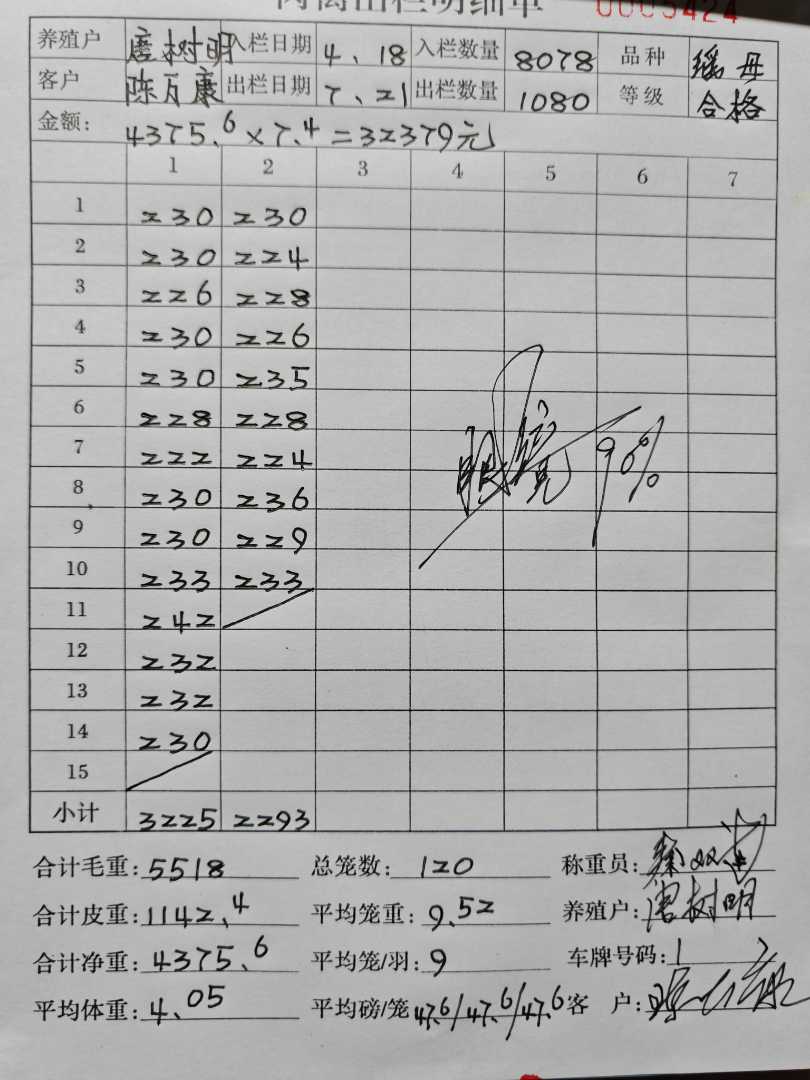 肉禽出栏明细单 0005424
养殖户 唐树明 入栏日期 4、18 入栏数量 8078 品种 瑶母
客户 陈万康 出栏日期 7、21 出栏数量 1080 等级 合格
金额: 4375.6×7.4=32379元
1 2 3 4 5 6 7
1 230 230
2 230 224
3 226 228
4 230 226
5 230 235
6 228 228
7 222 224
8 230 236
9 230 229
10 233 233
11 242
12 232
13 232
14 230
15
眼镜 90%
小计 3225 2293
合计毛重: 5518 总笼数: 120 称重员:
合计皮重: 1142.4 平均笼重: 9.52 养殖户: 唐树明
合计净重: 4375.6 平均笼/羽: 9 车牌号码:
平均体重: 4.05 平均磅/笼 47.6/47.6/47.6 客 户: